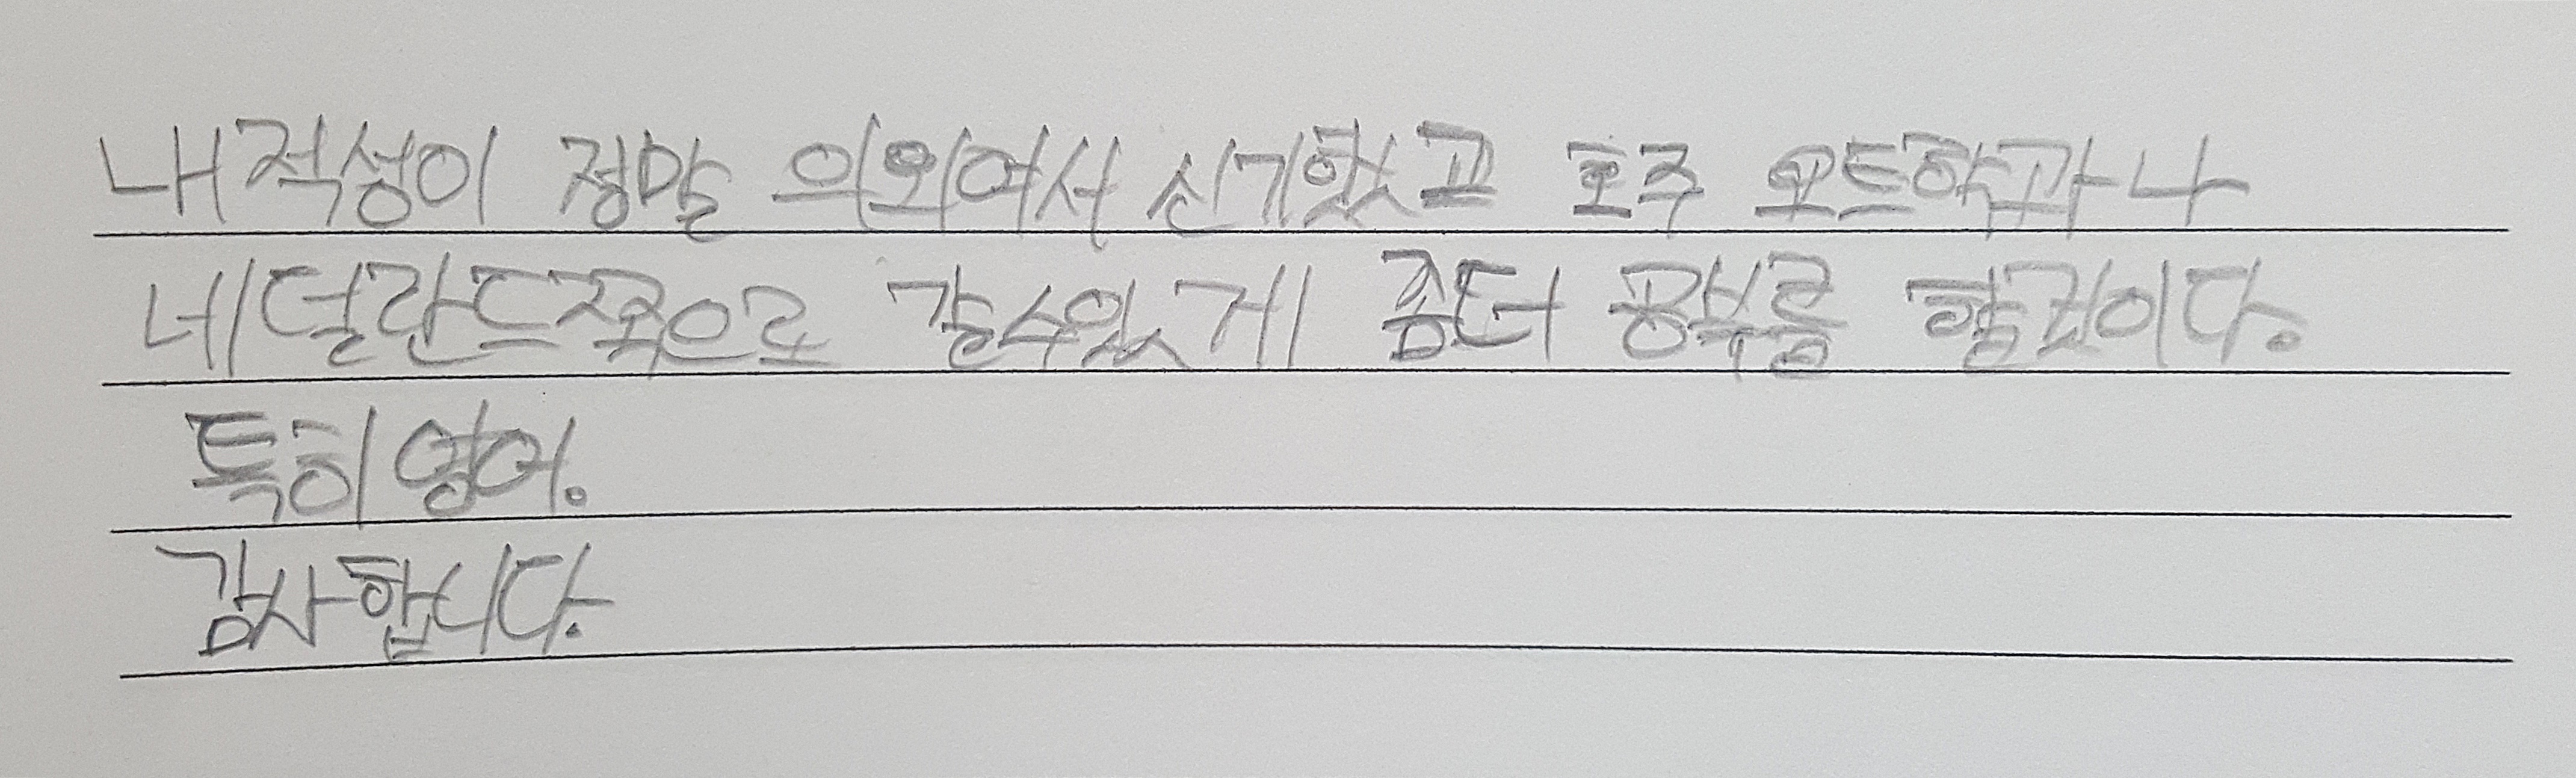 내적성이 정말 의외여서 신기했고 호주 모드학과나
네덜란드쪽으로 갈수있게 좀더 공부를 할것이다.
특히 영어.
감사합니다.